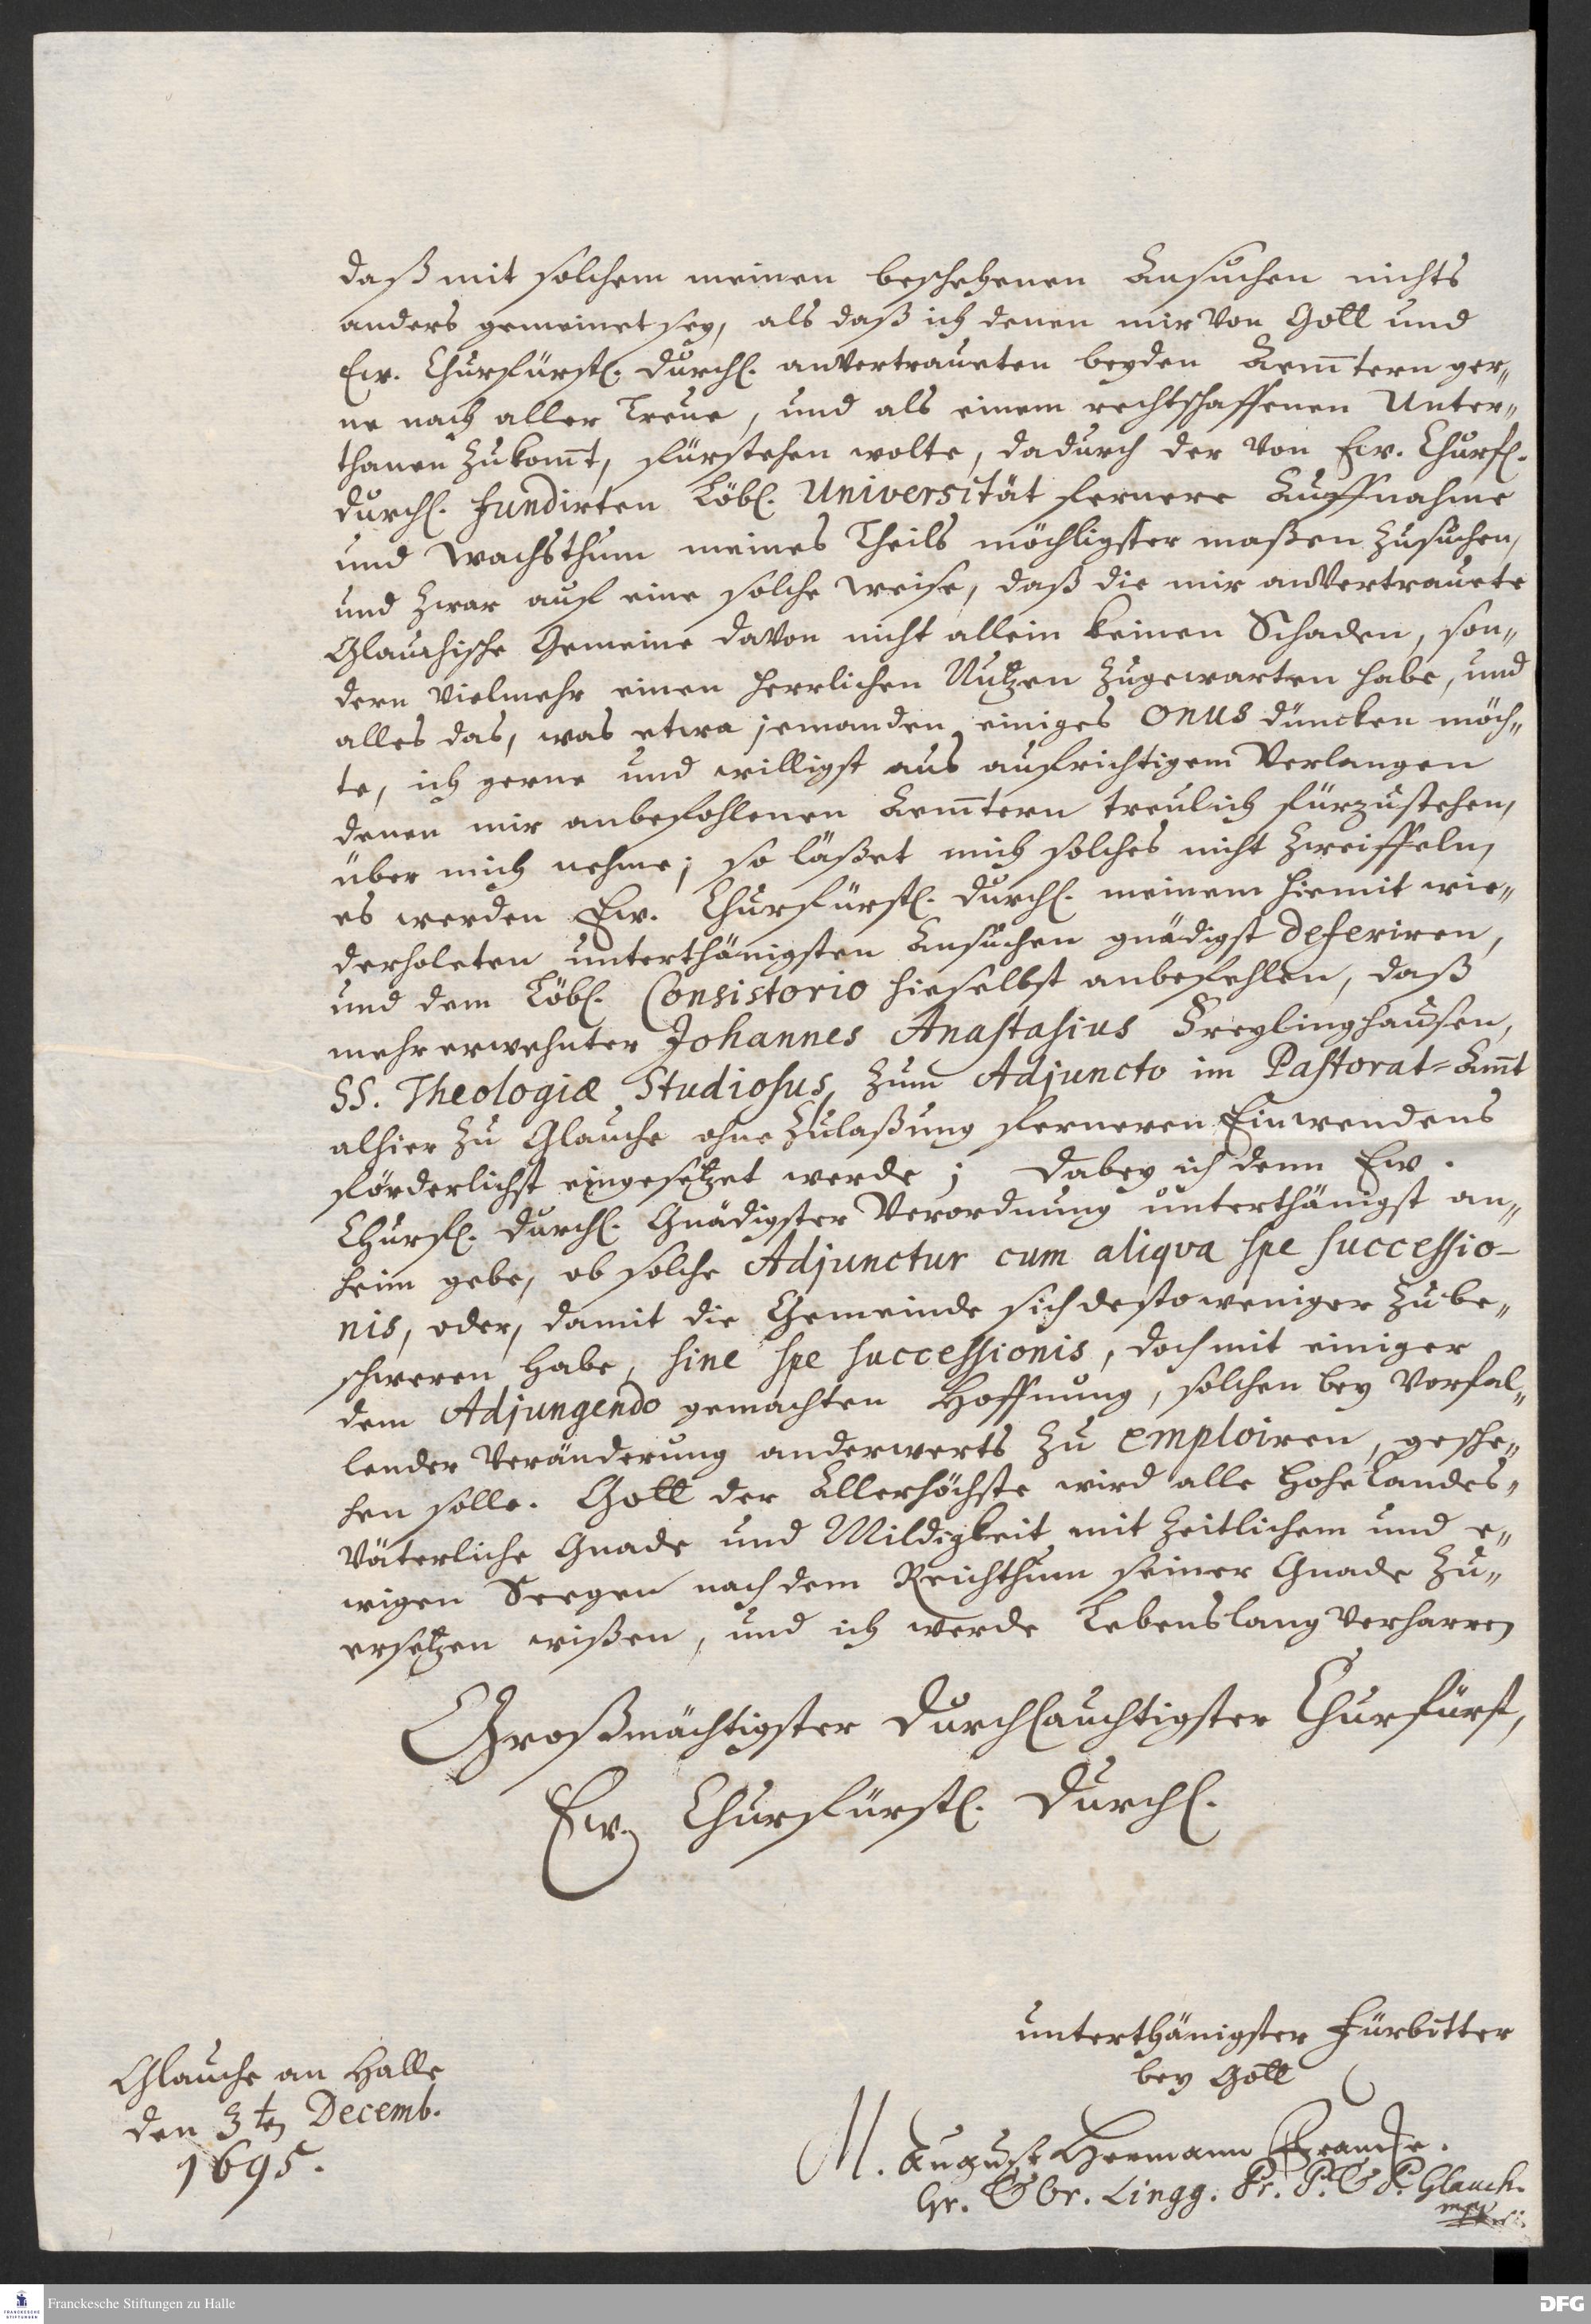 daß mit solchem meinen beschehenen Ansuchen nichts
anders gemeinet sey, als daß ich denen mir von Gott und
Ew. Churfürstl. Durchl. anvertraueten beyden Aem̄tern ger„
ne nach aller Treue, und als einem rechtschaffenen Unter„
thanen zukom̄t, fürstehen wolte, dadurch der von Ew. Churfl.
Durchl. fundirten Löbl. Universität fernere Auffnahme
und Wachsthum meines Theils möchligster maßen zusuchen,
und zwar auf eine solche weise, daß die mir anvertrauete
Glauchische Gemeine davon nicht allein keinen Schaden, son„
dern vielmehr einen herrlichen Nutzen zugewarten habe, und
alles das, was etwa jemanden einiges onus düncken möch„
te, ich gerne und willigst aus aufrichtigem Verlangen
denen mir anbefohlenen Aem̄tern treulich fürzustehen,
über mich nehme; so läßet mich solches nicht zweiffeln,
es werden Ew. Churfürstl. Durchl. meinem hiemit wie„
derholeten unterthänigsten Ansuchen gnädigst deferiren,
und dem Löbl. Consistorio hieselbst anbefehlen, daß
mehrerwehnter Johannes Anastasius Freylinghausen,
SS. Theologiæ Studiosus, zum Adjuncto im Pastorat-Am̄t
alhier zu Glauche ohne Zulaßung ferneren Einwendens
förderlichst eingesetzet werde; Dabey ich denn Ew.
Churfl. Durchl. Gnädigster Verordnung unterthänigst an„
heim gebe, ob solche Adjunctur cum aliqva spe successio-
nis, oder, damit die Gemeinde sich destoweniger zube„
schweren habe, sine spe successionis, doch mit einiger
dem Adjungendo gemachten Hoffnung, solchen bey Vorfal„
lender Veränderung anderwerts zu emploiren, gesche„
hen solle. Gott der Allerhöchste wird alle Hohe Landes„
Väterliche Gnade und Mildigkeit mit zeitlichem und e„
wigen Seegen nach dem Reichthum seiner Gnade zu„
ersetzen wißen, und ich werde Lebenslang verharren
Großmächtigster Durchlauchtigster Churfürst,
Ew. Churfürstl. Durchl.
unterthänigster Fürbitter
bey Gott
Glauche an Halle
den 3ten Decemb.
1695.
M. August Hermann Francke.
Gr. & Or. Lingg. Pr. P. & P. Glauch.
mpp.
Franckesche Stiftungen zu Halle
FRANCKESCHE STIFTUNGEN
DFG